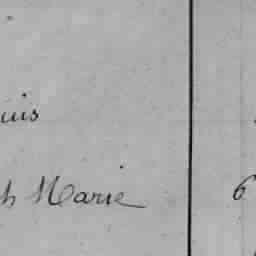 uis
h Marie 6